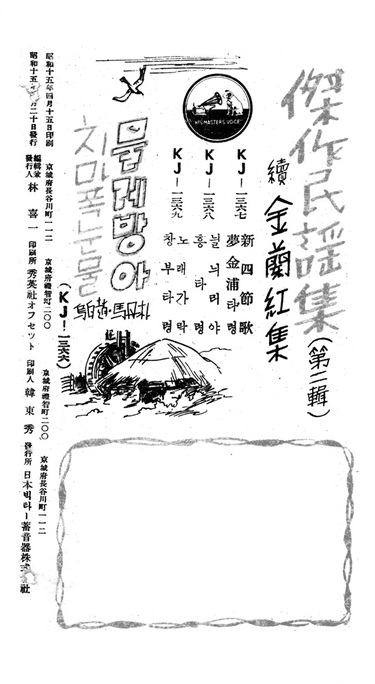 傑作民謠集(第二輯)
續 金蘭紅集
HIS MASTER'S VOICE
KJ—一三六七 新四節歌
夢金浦타령
KJ—一三六八 늴늬리야
흥타령
KJ—一三六九 노래가락
창부타령
물레방아
치마폭눈물
(KJ—一三六六)
昭和十五年四月十五日印刷 京城府長谷川町一一二 京城府禮智町二〇〇 京城府禮智町二〇〇 京城府長谷川町一一二
昭和十五年 月二十日發行 編輯兼發行人 林喜一 印刷所 秀英社オフセット 印刷人 韓東秀 發行所 日本빅타ー蓄音器株式會社